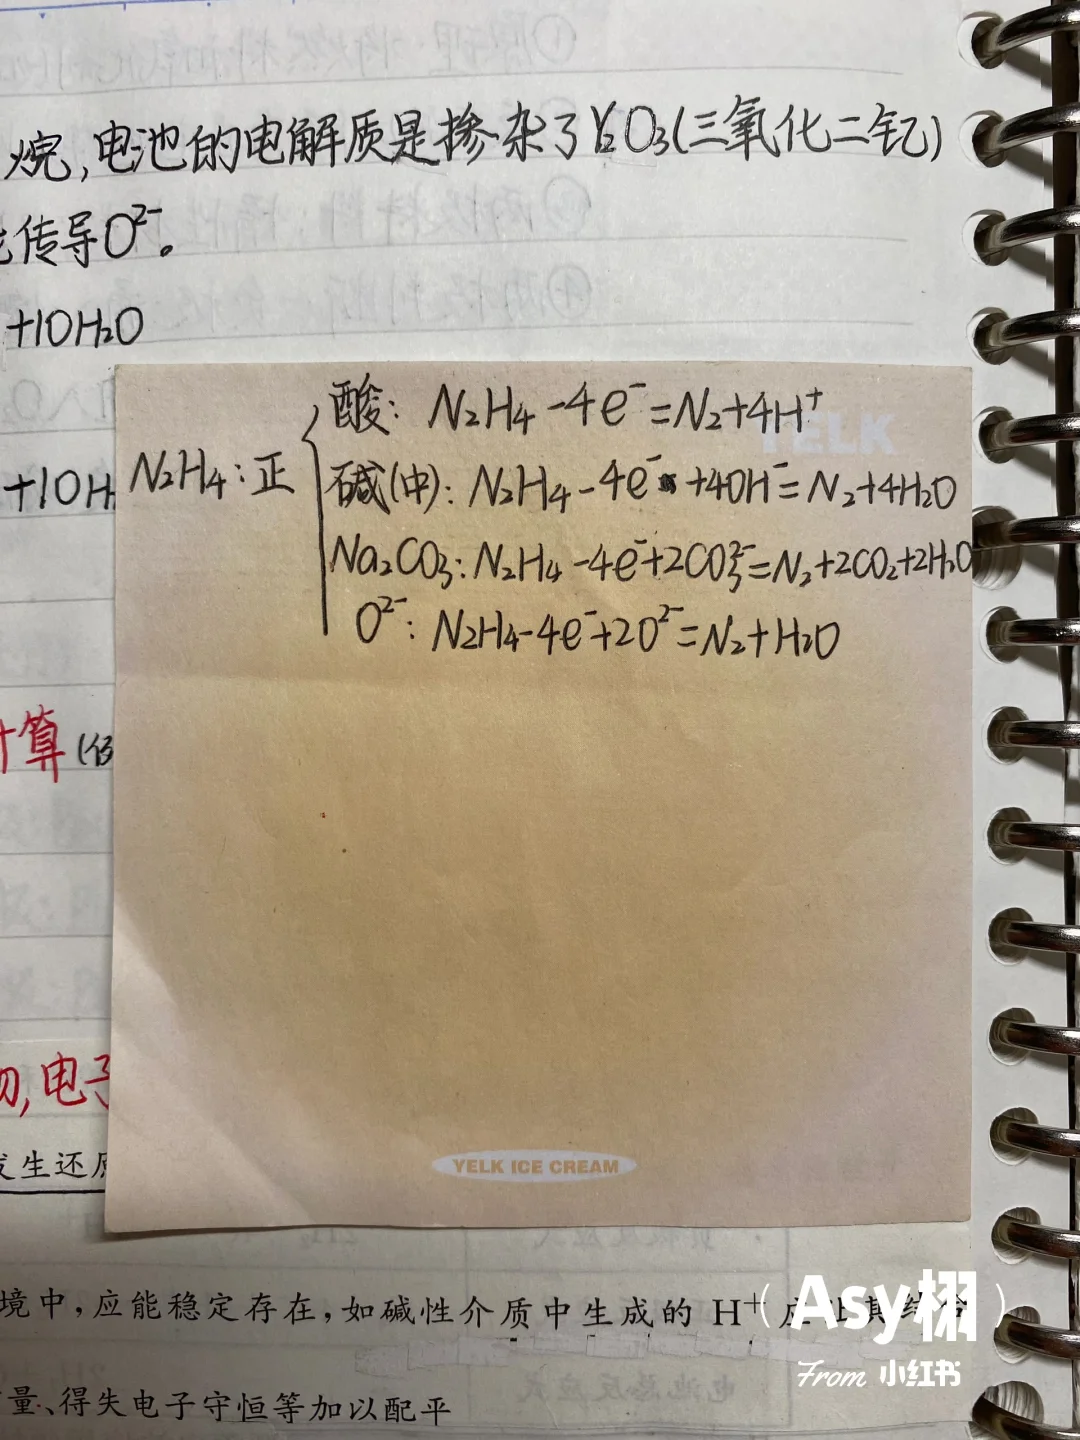 烷,电池的电解质是掺杂了Y₂O₃(三氧化二钇)
传导O²⁻。
+10H₂O
YELK
酸: N₂H₄-4e⁻=N₂+4H⁺
+10H
N₂H₄:正
碱(中): N₂H₄-4e⁻+4OH⁻=N₂+4H₂O
Na₂CO₃: N₂H₄-4e⁻+2CO₃²⁻=N₂+2CO₂+2H₂O
O²⁻: N₂H₄-4e⁻+2O²⁻=N₂+H₂O
算
,电子
发生还原
YELK ICE CREAM
境中,应能稳定存在,如碱性介质中生成的 H⁺应
量、得失电子守恒等加以配平
(Asy栩)
From 小红书